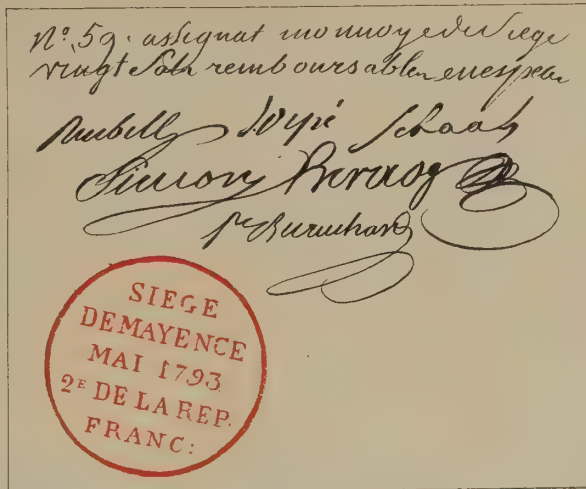 Nº. 59. assignat monnoye de Siege
vingt Sols remboursables en espece
Reubell
Simon
SIEGE
DE MAYENCE
MAI 1793
2E DE LA REP.
FRANC: